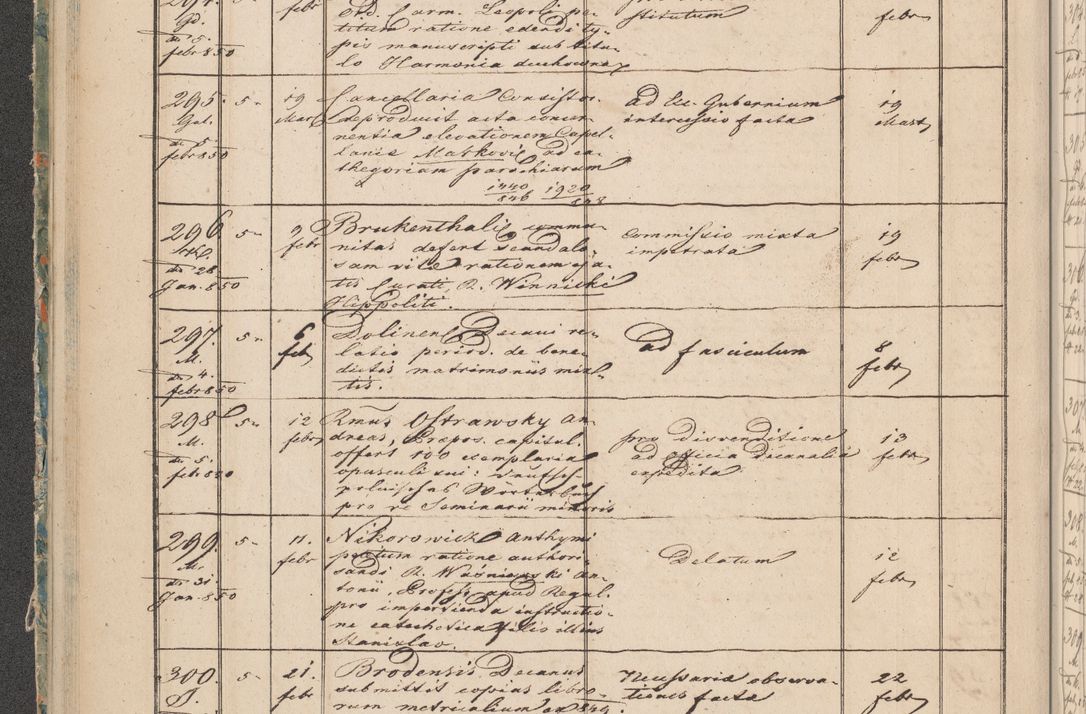 febr
Gd.
dto 5.
febr 850
titum ratione edendi ty-
pis manuscripti sub titu-
lo Harmonia duchowna
stitutum
febr
295
Gal.
dto 5
febr 850
5
19
Mart
Cancellaria Consistor.
reproducit acta concer-
nentia elevationem Capel-
laniae Matkovic ad ca-
thegoriam parochiarum
1440/846 1920/848
ad Ec. Gubernium
intercessio facta
19
Mart
296
dto 28
Jan. 850
5
9
febr
Brukenthalis commu-
nitas defert scandalo-
sam vitae rationem eja-
tis Curati R. Winnicki
Hippoliti.
Commissio mixta
imperata
19
febr
297.
M.
dto 4.
febr 850
5
6
feb
Dolinens. Decani re-
latio period. de bene-
dictis matrimoniis mix-
tis.
ad fasciculum
8
febr
298
M.
dto 5.
febr 850
5
12
febr
Rmus Ostrawsky An-
dreas, Praepos. capitul.
offert 100 exemplaria
opusculi sui: Deutsch-
polnisches Wörterbuch
pro re Seminarii minoris
pro disvenditione
ad officia Decanalia
expedita
13
febr
299.
M.
dto 31
Jan. 850
5
11.
febr
Nikorowicz Anthymi
petitum ratione authori-
sandi R. Waśniewski An-
tonii, Profess. apud Regul.
pro impertienda instructio-
ne catechetica filio illius
Stanislao.
Delatum
12
febr
300.
5
21.
febr
Brodensis Decanus
submittit copias libro-
rum metricalium ex 849.
Necessaria observa-
tiones factae
22
febr